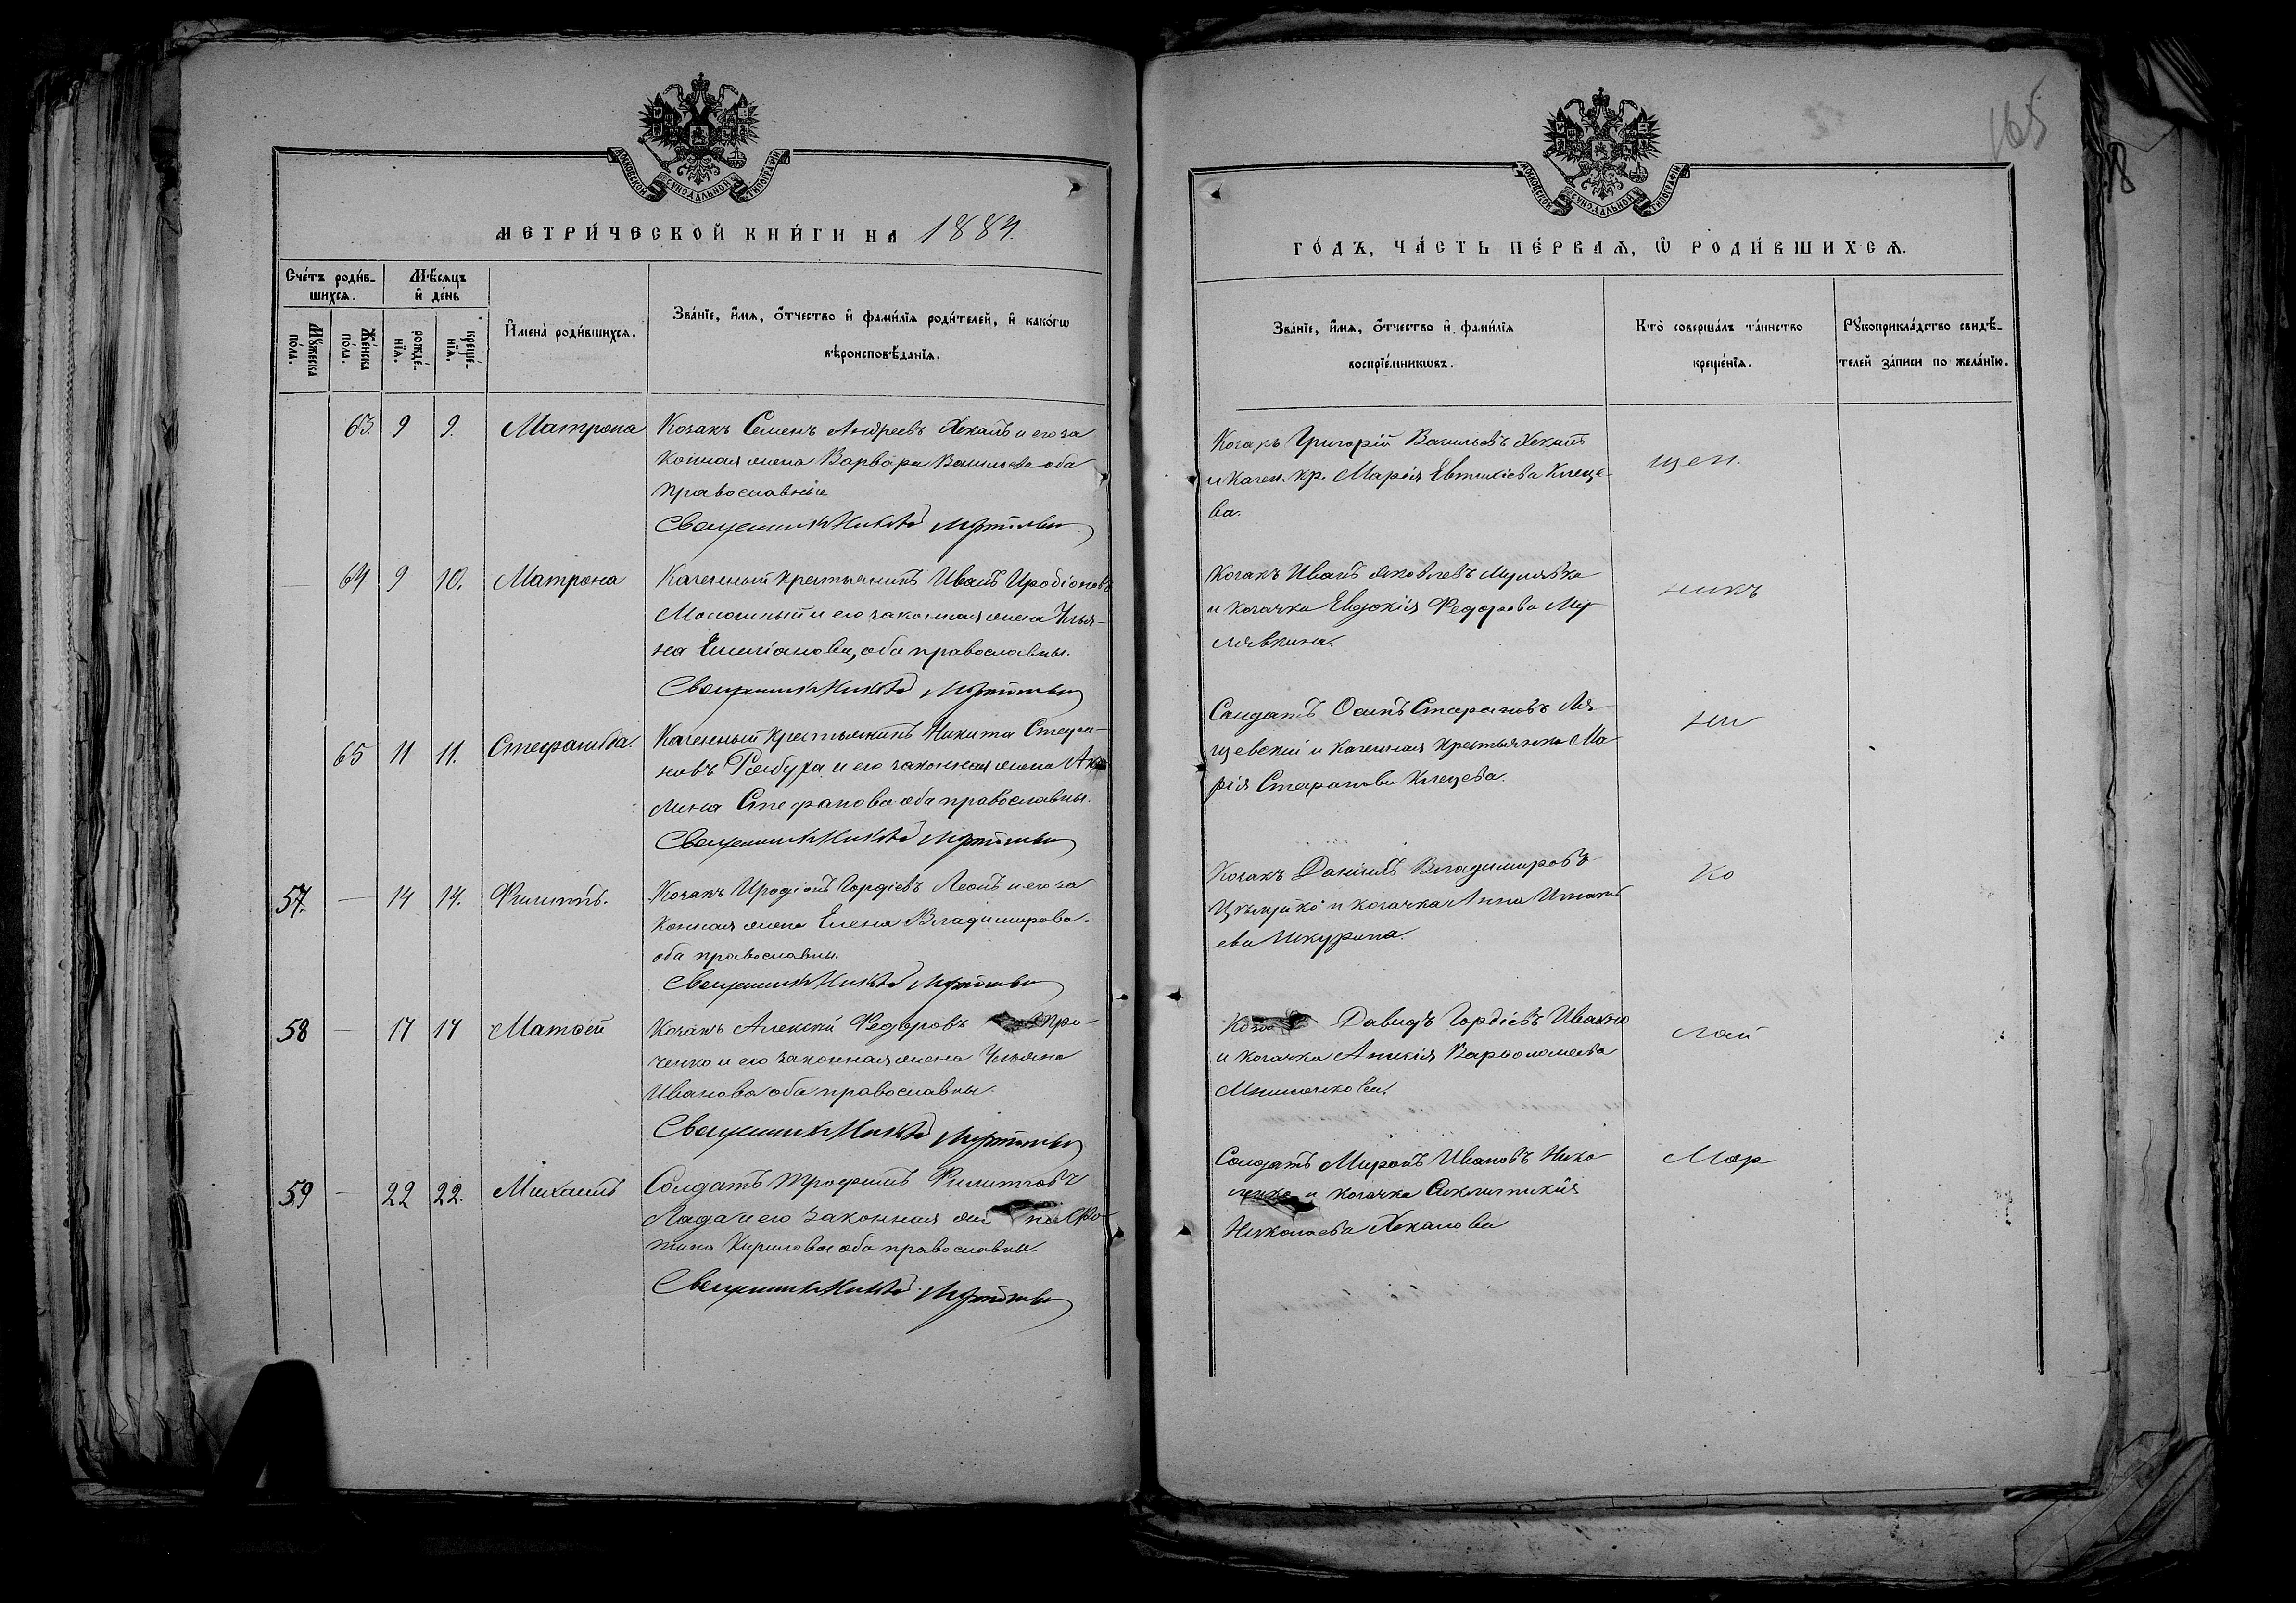 165
18
МОСКОВСКОЙ СѴНОДАЛЬНОЙ ТИПОГРАФІИ
МЕТРИ́ЧЕСКОЙ КНИ́ГИ НА 1884.
Сче́тъ роди́в-
шихся.
Мѣ́сяцъ
и҆ де́нь
Мꙋ́жеска по́ла.
Же́нска по́ла.
рожде́-
нїѧ.
креще́-
нїѧ.
И҆мена̀ роди́вшихсѧ.
Зва́нїе, и҆́мѧ, ѻ҆́тчество и҆ фами́лїѧ роди́телей, и҆ како́гѡ
вѣроисповѣ́данїѧ.
63. 9 9. Матрона Козакъ Семенъ Андреевъ Хекалъ и его за
конная жена Варвара Васильева оба
православные
Священникъ
64 9 10. Матрона Казенный крестьянинъ Иванъ Иродіоновъ
и его законная жена Улья-
на Емиліанова, оба православны.
Священникъ
65 11 11. Стефанида. Казенный крестьянинъ Никита Стефа-
новъ и его законная жена Аку
лина Стефанова оба православны.
Священникъ
57. — 14 14. Филиппъ. Козакъ Иродіонъ Гордіевъ Леонъ и его за
конная жена Елена Владимирова.
оба православны.
Священникъ
58 — 17 17 Матѳей Козакъ Алексѣй Федоровъ
ченко и его законная жена Ульяна
Иванова оба православны.
Священникъ
59 — 22 22. Михаилъ Солдатъ Трофимъ Филиповъ
Лада и его законная же на
Кирилова оба православны.
Священникъ
МОСКОВСКОЙ СѴНОДАЛЬНОЙ ТИПОГРАФІИ
ГО́ДЪ, ЧА́СТЬ ПЕ́РВАѦ, Ѽ РОДИ́ВШИХСѦ.
Зва́нїе, и҆́мѧ, ѻ҆́тчество и҆ фами́лїѧ
воспрїе́мникѡвъ.
Кто̀ соверша́лъ та́инство
креще́нїѧ.
Рꙋкоприкла́дство свидѣ́-
телей за́писи по жела́нїю.
Козакъ Григорій Васильевъ Хекалъ
и казен. кр. Марія Евтихіева Клеще-
ва.
щен.
Козакъ Иванъ Яковлевъ Мулявка
и козачка Евдокія Федорова Му
лявкина.
никъ
Солдатъ Осипъ Стефановъ Ля-
щевскій и казенная крестьянка Ма
рія Стефанова Клещева.
Ни
Козакъ Даніилъ Владимировъ
и козачка Анна Игнать
ева Шкурина.
ко
Давидъ Гордіевъ Ивахно
и козачка Анисія Варѳоломеева
лай
Солдатъ Миронъ Ивановъ Нико
и козачка Синклитикія
Николаева Хекалова
Мар